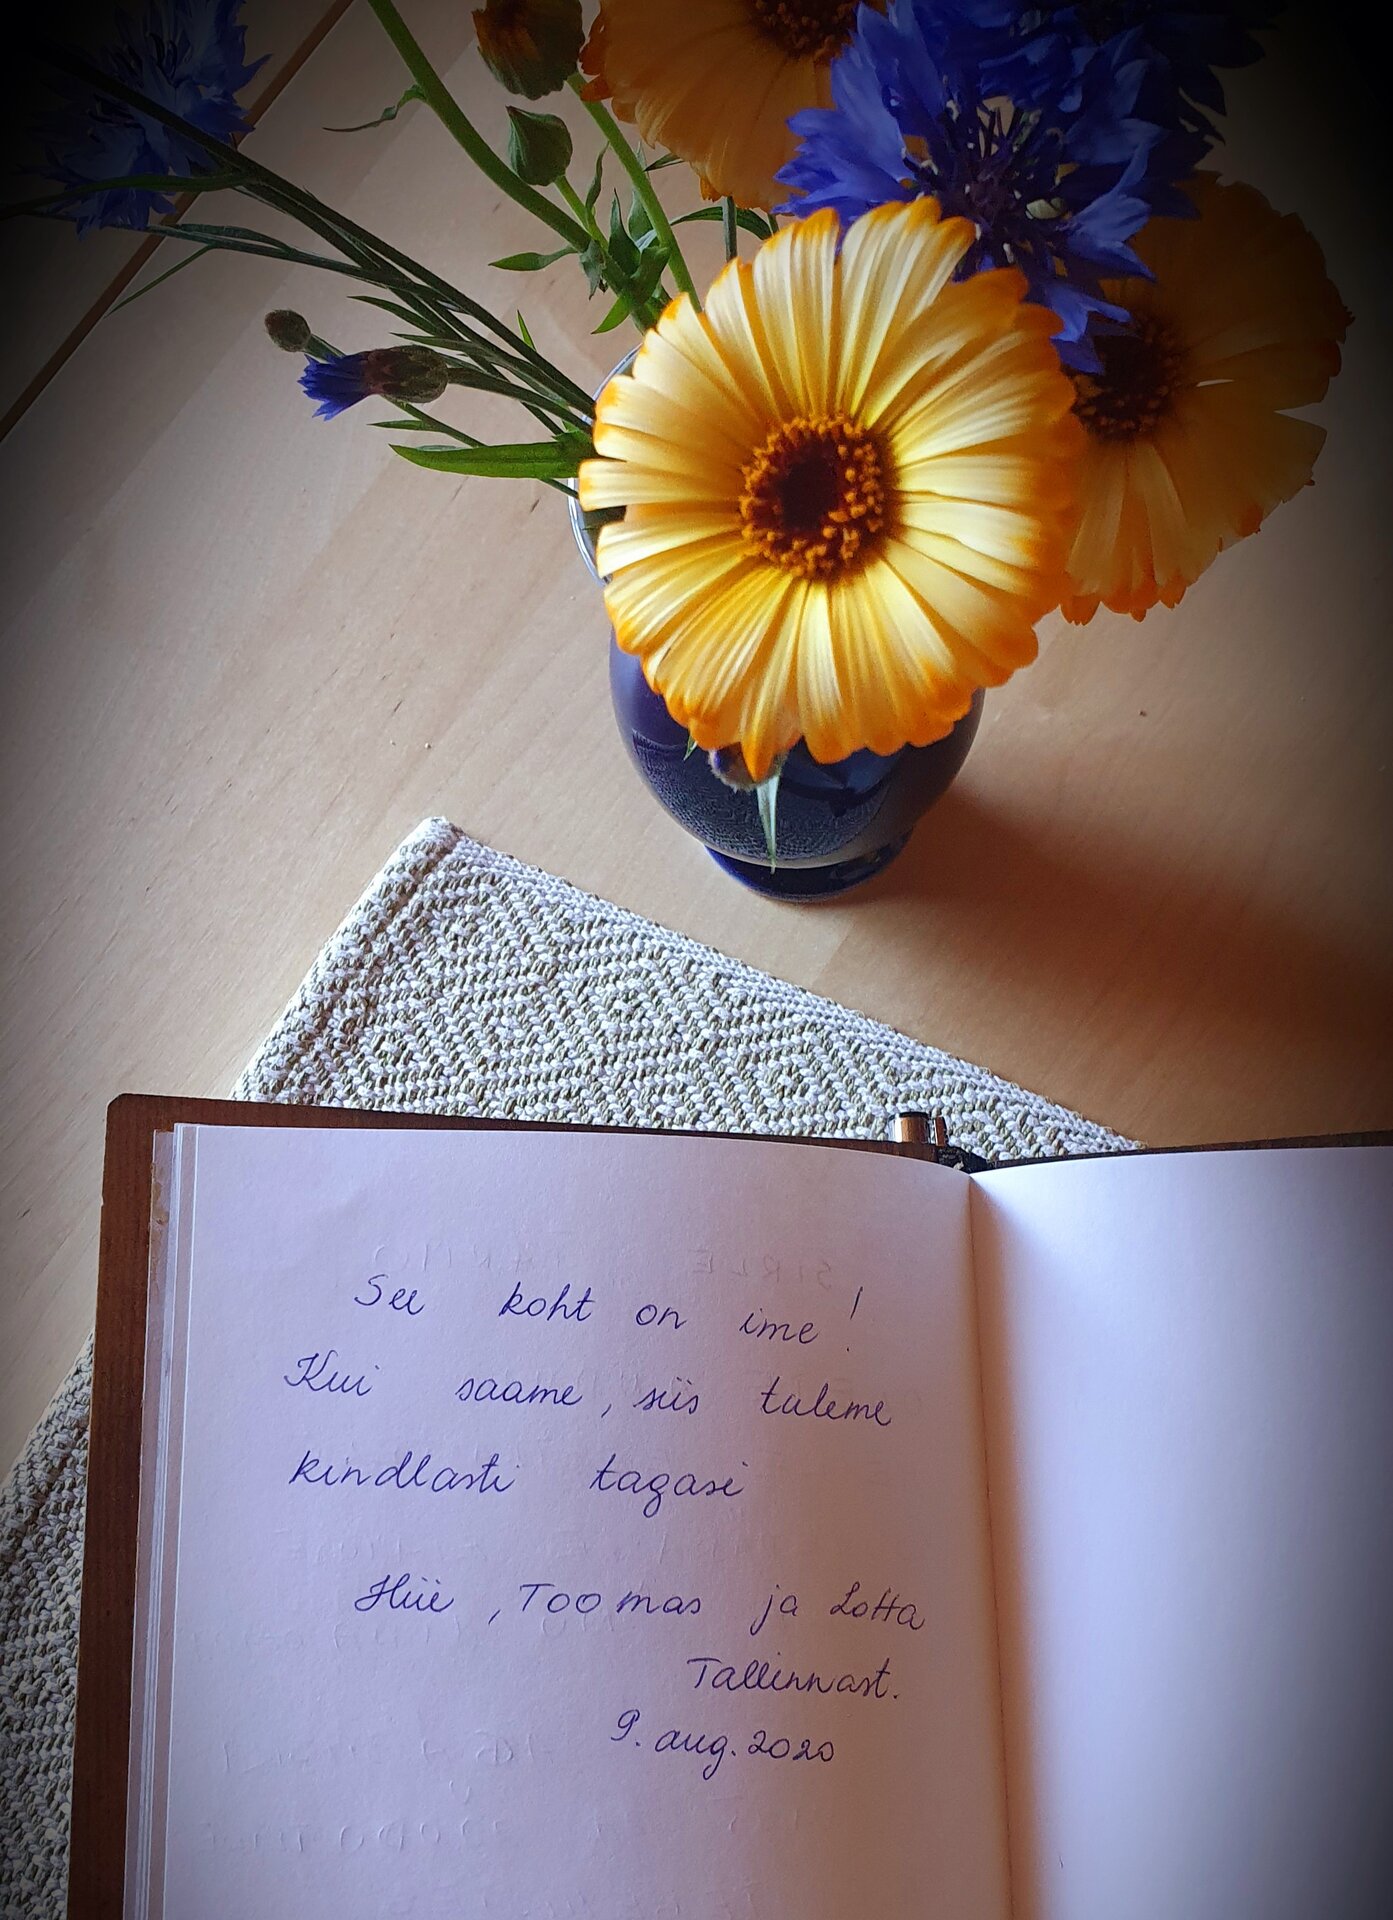 See koht on ime!
Kui saame, siis tuleme
kindlasti tagasi
Hiie, Toomas ja Lotta
Tallinnast.
9. aug. 2020